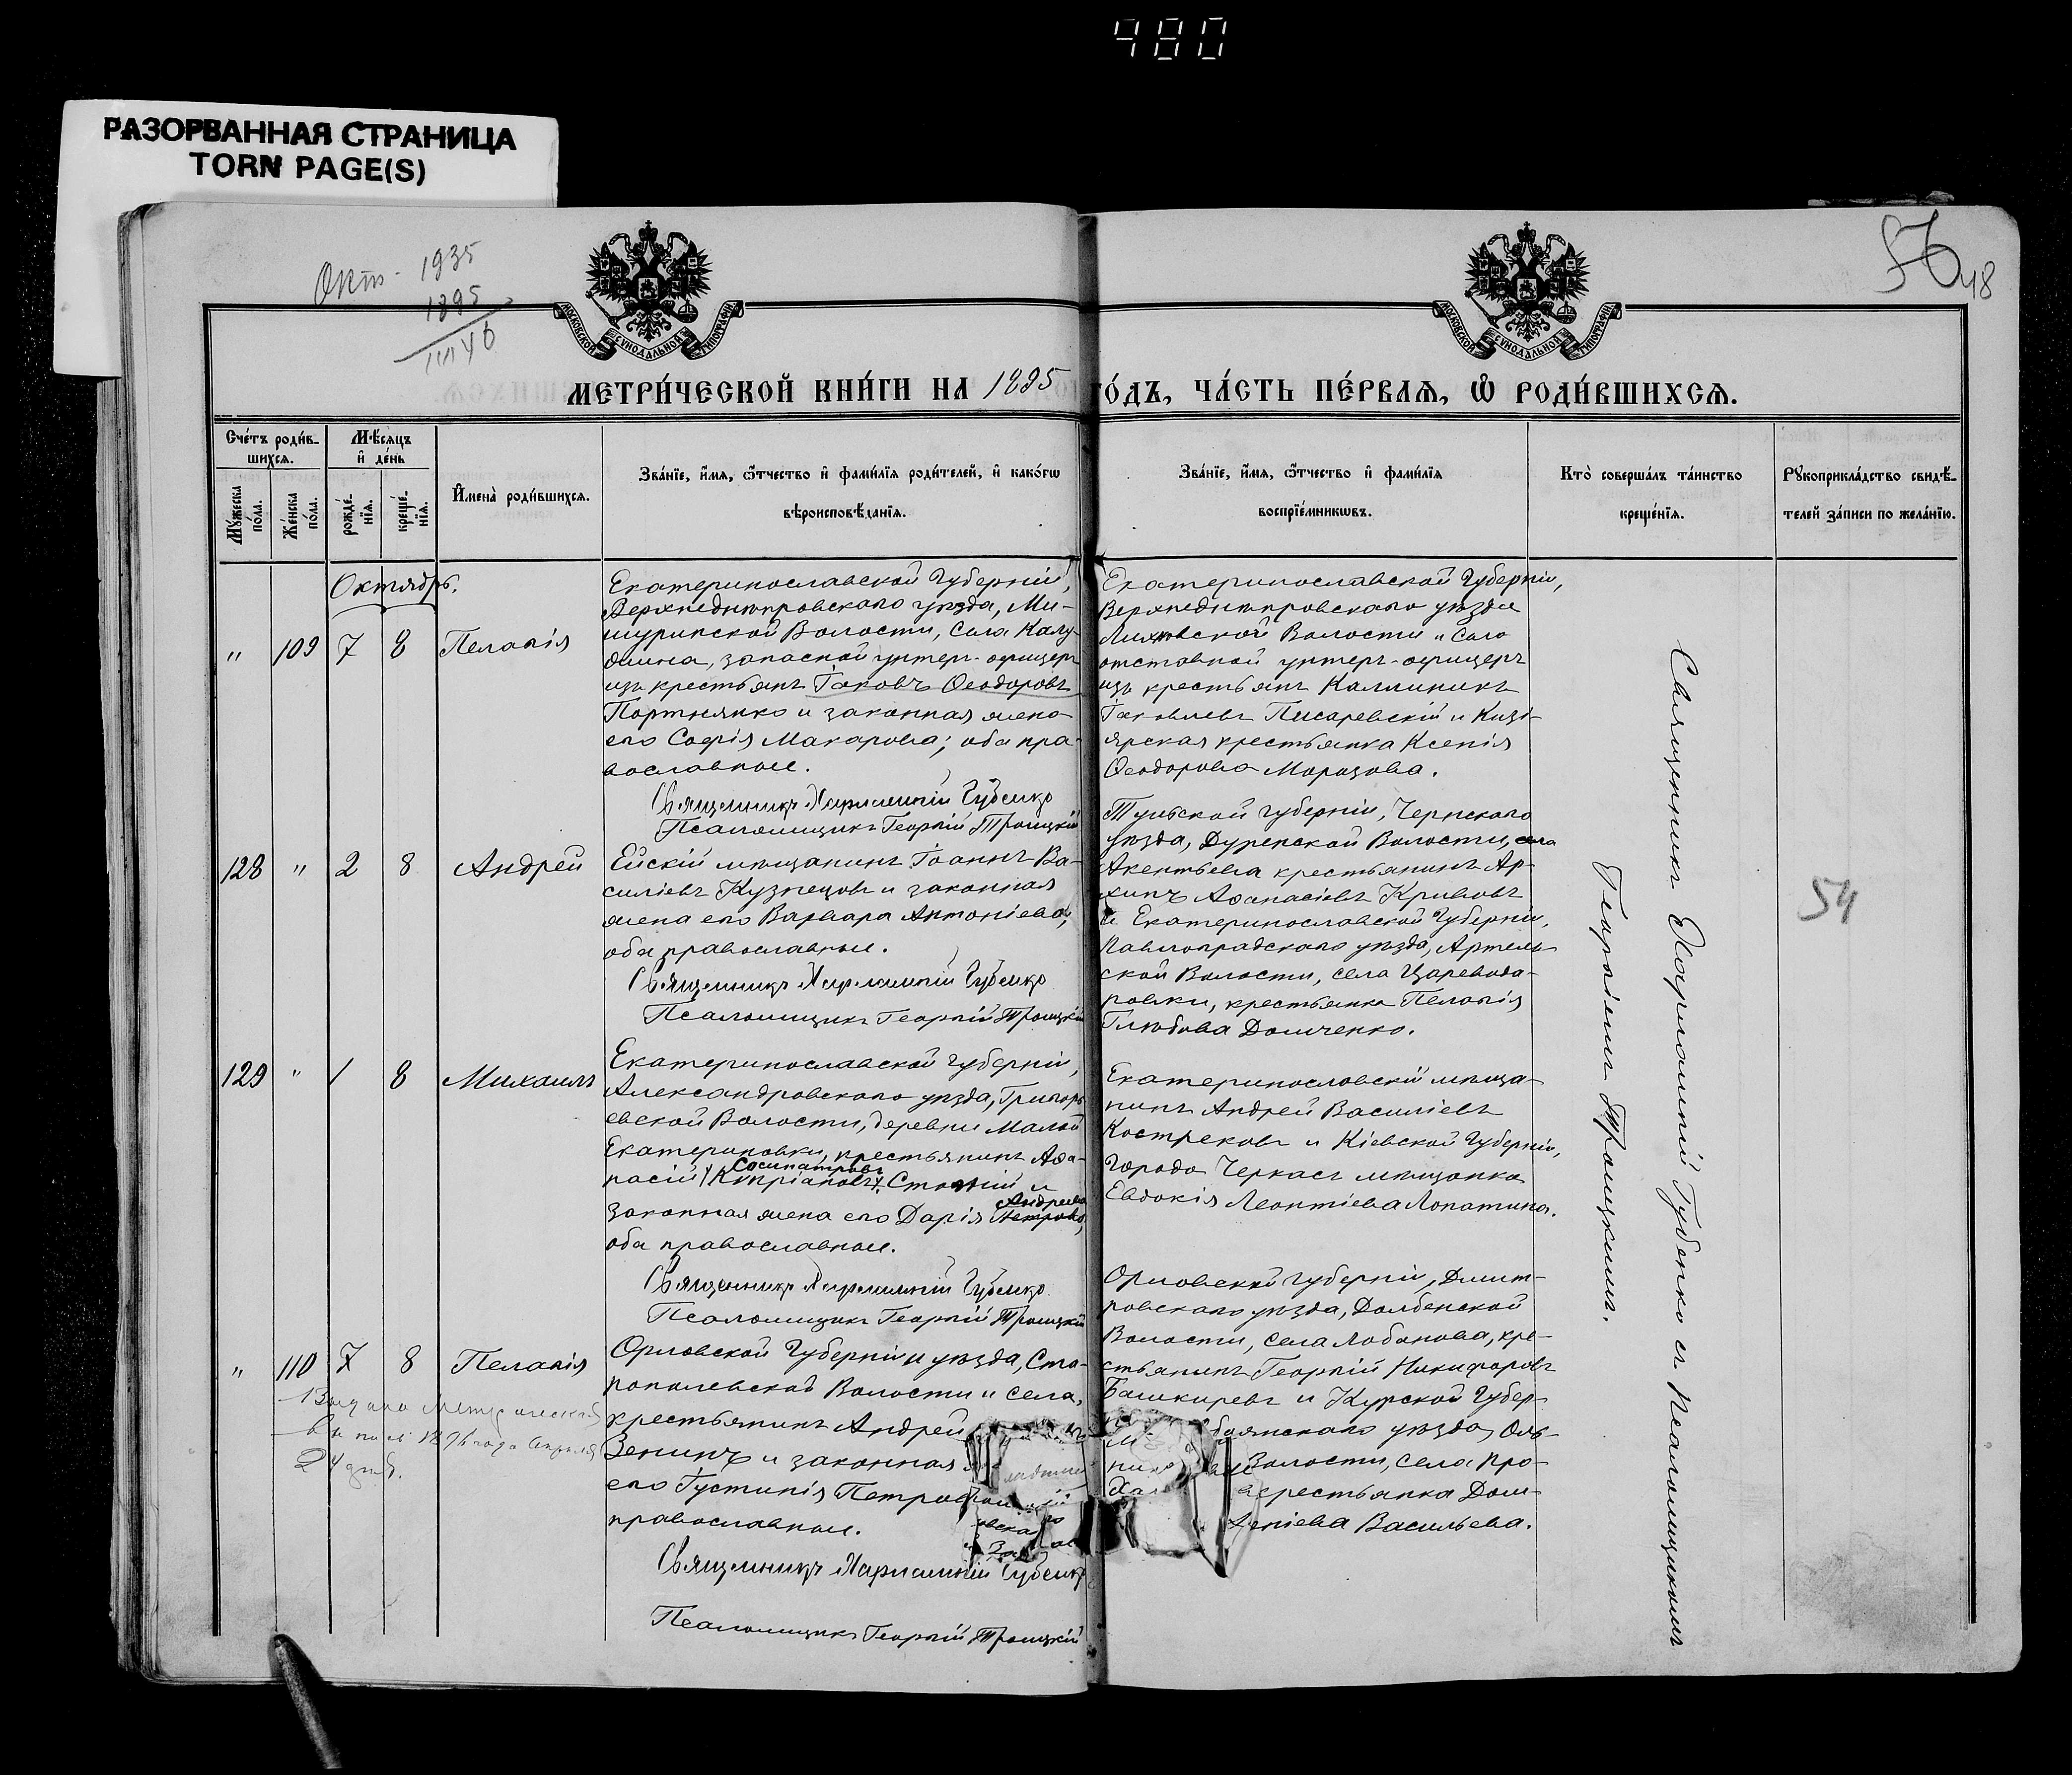 480
РАЗОРВАННАЯ СТРАНИЦА
TORN PAGE(S)
Окт. 1935
1895
40
56
48
МОСКОВСКОЙ СѴНОДАЛЬНОЙ ТИПОГРАФІИ
МОСКОВСКОЙ СѴНОДАЛЬНОЙ ТИПОГРАФІИ
МЕТРИ́ЧЕСКОЙ КНИ́ГИ НА 1895 ГО́ДЪ, ЧА́СТЬ ПЕ́РВАЯ, Ѿ РОДИ́ВШИХСЯ.
Сче́тъ роди́в-
шихся.
Му́жеска по́ла.
Же́нска по́ла.
Мѣ́сяцъ
и҆ де́нь
рожде́-
нїя.
креще́-
нїя.
И҆мена̀ роди́вшихся.
Зва́нїе, и҆́мя, ѻ҆́тчество и҆ фами́лїя роди́телей, и҆ како́гѡ
вѣроисповѣ́данїя.
Зва́нїе, и҆́мя, ѻ҆́тчество и҆ фами́лїя
воспрїе́мникѡвъ.
Кто̀ соверша́лъ та́инство
креще́нїя.
Рꙋкоприкла́дство свидѣ́-
телей за́писи по жела́нїю.
Октябрь.
" 109 7 8 Пелагія
Екатеринославской Губерніи,
Верхнеднѣпровскаго уѣзда, Ми-
шуринской Волости, Села Калу-
жина, запасной унтер-офицеръ
изъ крестьянъ Іаковъ Ѳеодоровъ
Портнянко и законная жена
его Софія Макарова; оба пра-
вославные.
Священникъ Харлампій Губенко
Псаломщикъ Георгій Троицкій
Екатеринославской Губерніи,
Верхнеднѣпровскаго уѣзда
Лиховской Волости и Села
отставной унтеръ-офицеръ
изъ крестьянъ Каллиникъ
Іаковлевъ Писаревскій и Кизі-
ярская крестьянка Ксенія
Ѳеодорова Морозова.
128 " 2 8 Андрей
Ейскій мѣщанинъ Іоаннъ Ва-
силіевъ Кузнецовъ и законная
жена его Варвара Антоніева,
оба православные.
Священникъ Харлампій Губенко
Псаломщикъ Георгій Троицкій
Тульской губерніи, Чернскаго
уѣзда, Дуренской Волости, села
Акентьева крестьянинъ Ар-
хипъ Аѳанасіевъ Кривовъ
и Екатеринославской Губерніи,
Павлоградскаго уѣзда, Артель-
ской Волости, села Царевода-
ровки, крестьянка Пелагія
Глѣбова Домченко.
129 " 1 8 Михаилъ
Екатеринославской губерніи,
Александровскаго уѣзда, Григорь-
евской Волости, деревни Малой
Екатериновки, крестьянинъ Аѳа-
насій (Купріановъ) Сосипатровъ
и
законная жена его Дарія Петрова, Андреева
оба православные.
Священникъ Харлампій Губенко
Псаломщикъ Георгій Троицкій
Екатеринославскій мѣща-
нинъ Андрей Василіевъ
Кострековъ и Кіевской Губерніи,
города Черкасъ мѣщанка
Евдокія Леонтіева Лопатина.
" 110 7 8 Пелагія
Орловской Губерніи и уѣзда, Ста-
рополевской Волости и села,
крестьянинъ Андрей
Зенинъ и законная
его Іустинія Петро
православные.
Священникъ Харлампій Губенко
Псаломщикъ Георгій Троицкій
Орловской губерніи, Дмит-
ровскаго уѣзда, Долбенской
Волости, села Лобанова, кре-
стьянинъ Георгій Никифоровъ
Башкиревъ и Курской Губер-
уѣзда, Оль-
Волости, села Про-
крестьянка Дом-
Васильева.
24 дня.
Священникъ Харлампій Губенко съ Псаломщикомъ
Георгіемъ Троицкимъ.
54